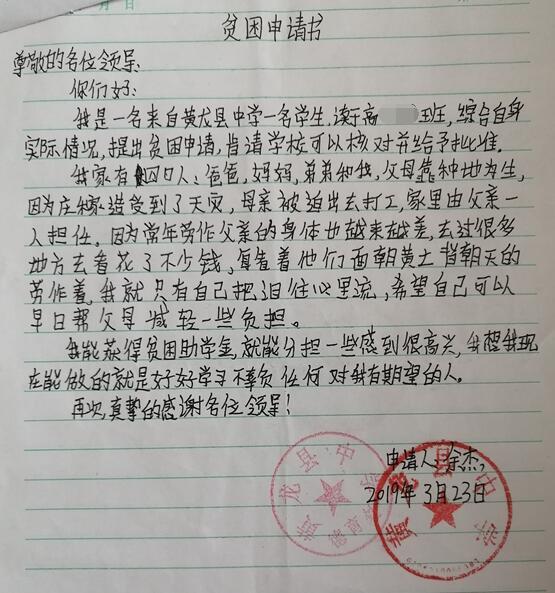 月 日
贫困申请书
尊敬的各位领导:
你们好:
我是一名来自黄龙县中学一名学生,读于高 班,综合自身
实际情况,提出贫困申请,肯请学校可以核对并给予批准。
我家有四口人、爸爸,妈妈,弟弟和我,父母靠种地为生,
因为庄稼遭受到了天灾,母亲被迫出去打工,家里由父亲一
人担任。因为常年劳作父亲的身体也越来越差,去过很多
地方去看花了不少钱,每看着他们面朝黄土背朝天的
劳作着,我就只有自己把泪往心里流,希望自己可以
早日帮父母减轻一些负担。
我能获得贫困助学金,就能分担一些感到很高兴,我想我现
在能做的就是好好学习不辜负任何对我有期望的人。
再次真挚的感谢各位领导!
申请人:余杰,
2019年3月23日
黄龙县中学
黄龙县中学